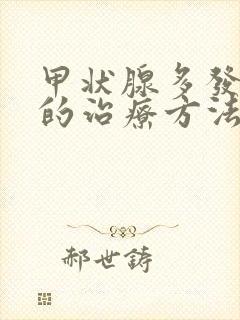 甲状腺多發
的治療方法
郝世鋳